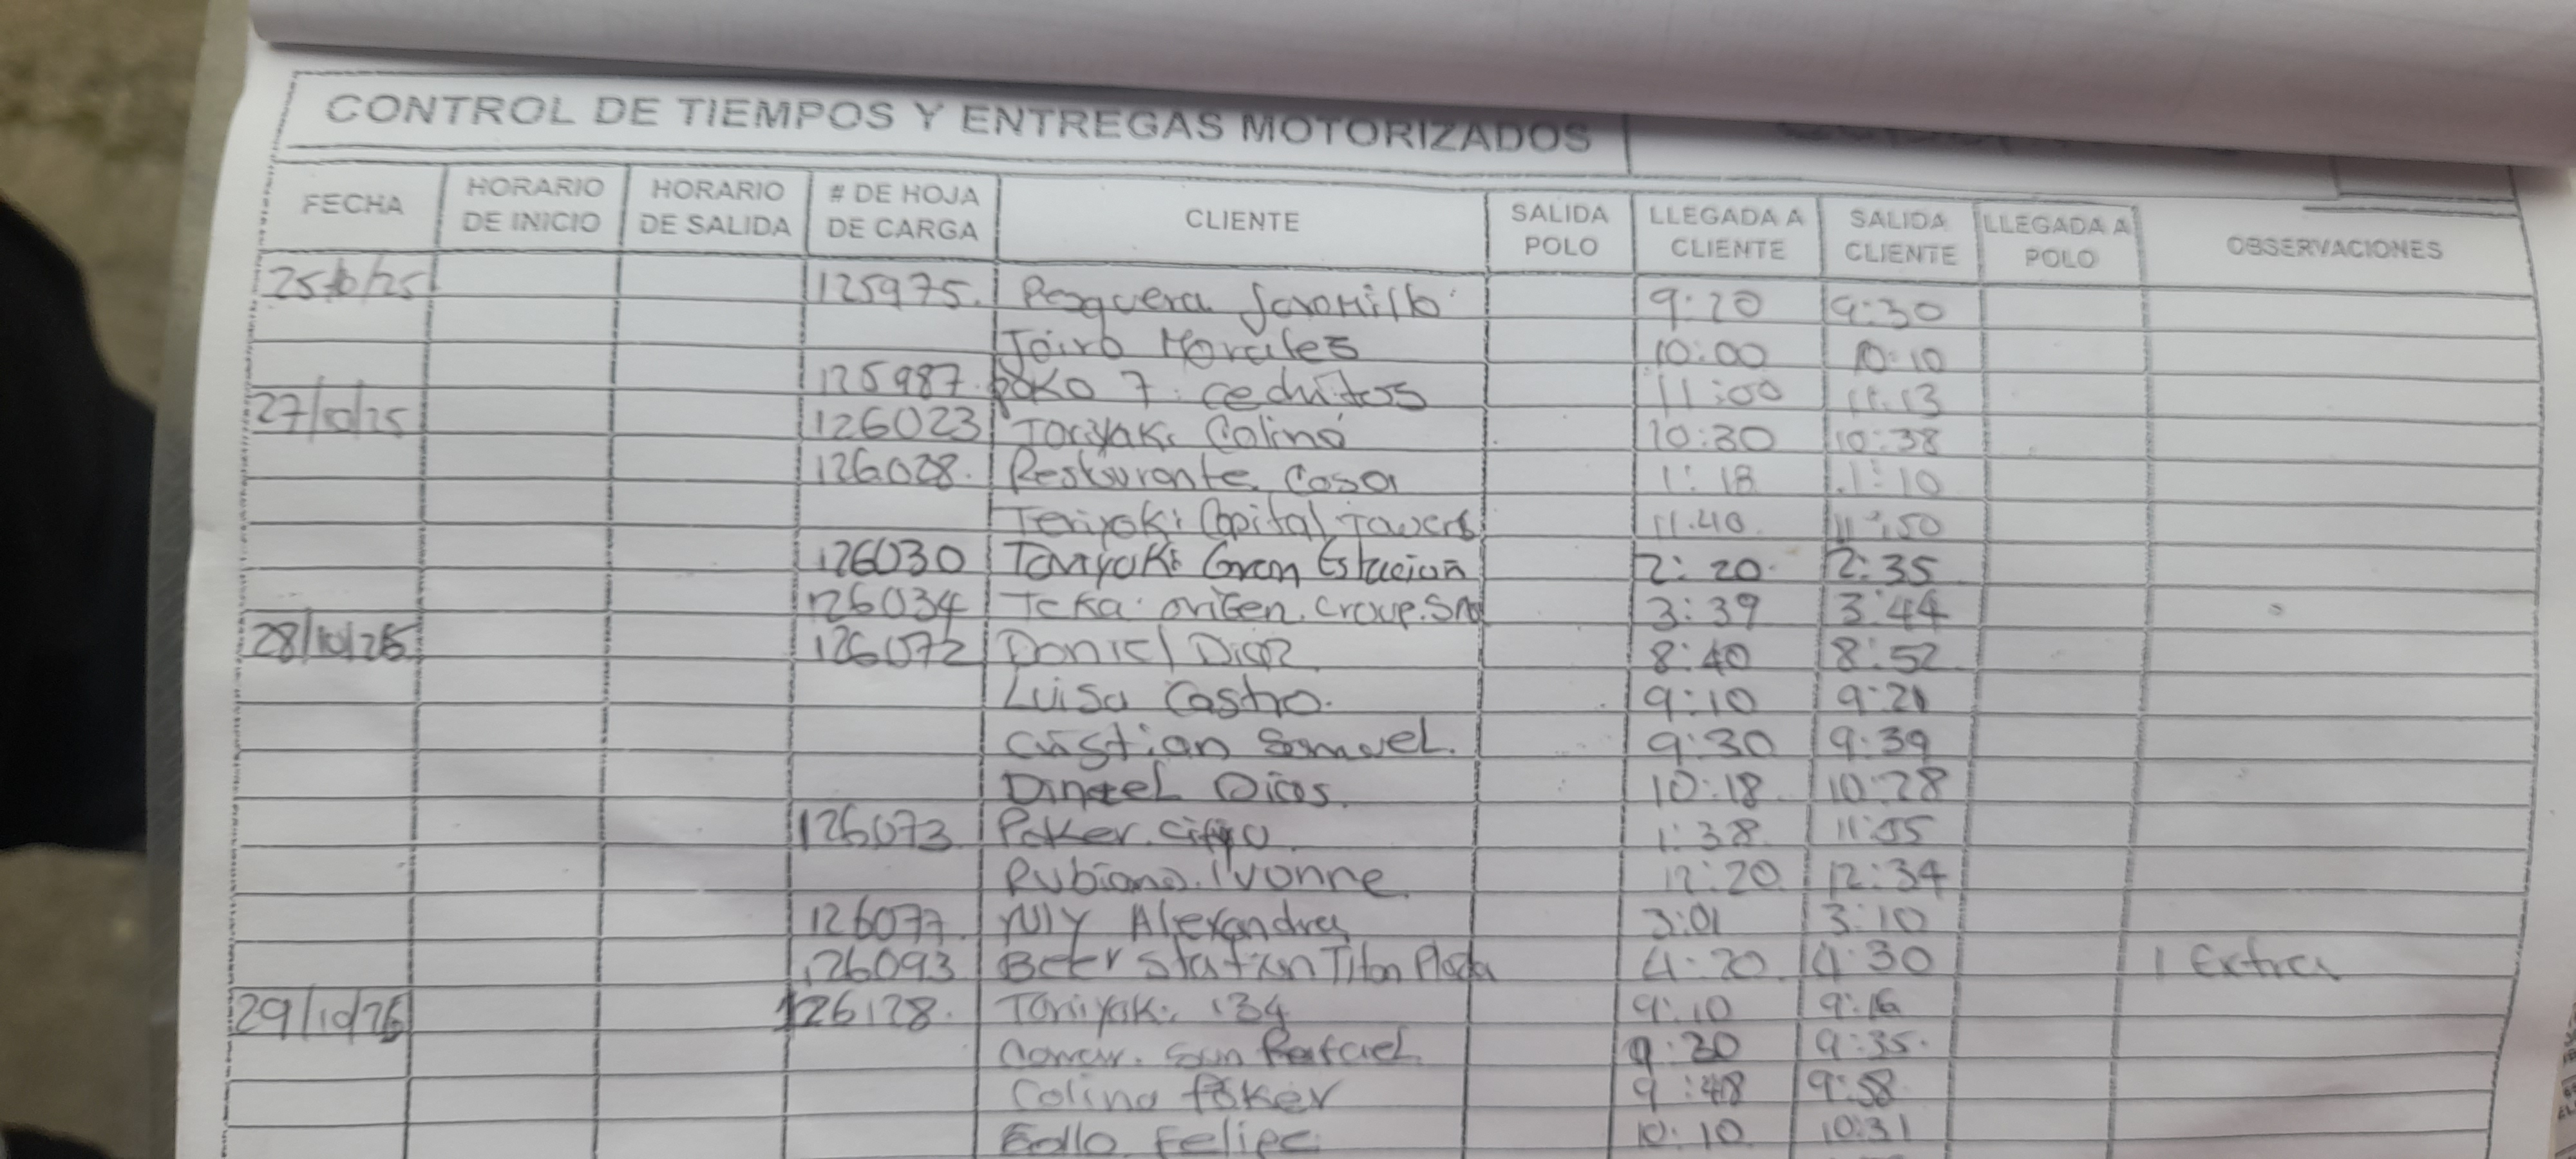 CONTROL DE TIEMPOS Y ENTREGAS MOTORIZADOS
FECHA HORARIO DE INICIO HORARIO DE SALIDA # DE HOJA DE CARGA CLIENTE SALIDA POLO LLEGADA A CLIENTE SALIDA CLIENTE LLEGADA A POLO OBSERVACIONES
25/10/25 125975. Pesquera Jaramillo 9:20 9:30
Jairo Morales 10:00 10:10
125987. poko 7. cedritos 11:00 11:13
27/10/25 126023 Toriyaki Colina 10:30 10:38
126028. Resturante Casa 1:18 1:10
Teriyaki Capital Towers 11.40 11:50
126030 Toriyaki Gran Estacion 2:20 2:35
126034 Teka origen. Group. 3:39 3:44
28/10/25 126072 Daniel Diaz 8:40 8:52
Luisa Castro. 9:10 9:21
Cristian Samuel. 9:30 9:39
10:18 10:28
126073. Poker. 1:38 11:55
Rubiano. Ivonne. 12:20 12:34
126077. Yuly Alexandra 3:01 3:10
126093 Beer Station Titan Plaza 4:20 4:30 1 Extra
29/10/25 126128. Toriyaki 134 9:10 9:16
San Rafael 9:30 9:35.
Colina Poker 9:48 9:58
Felipe. 10:10 10:31